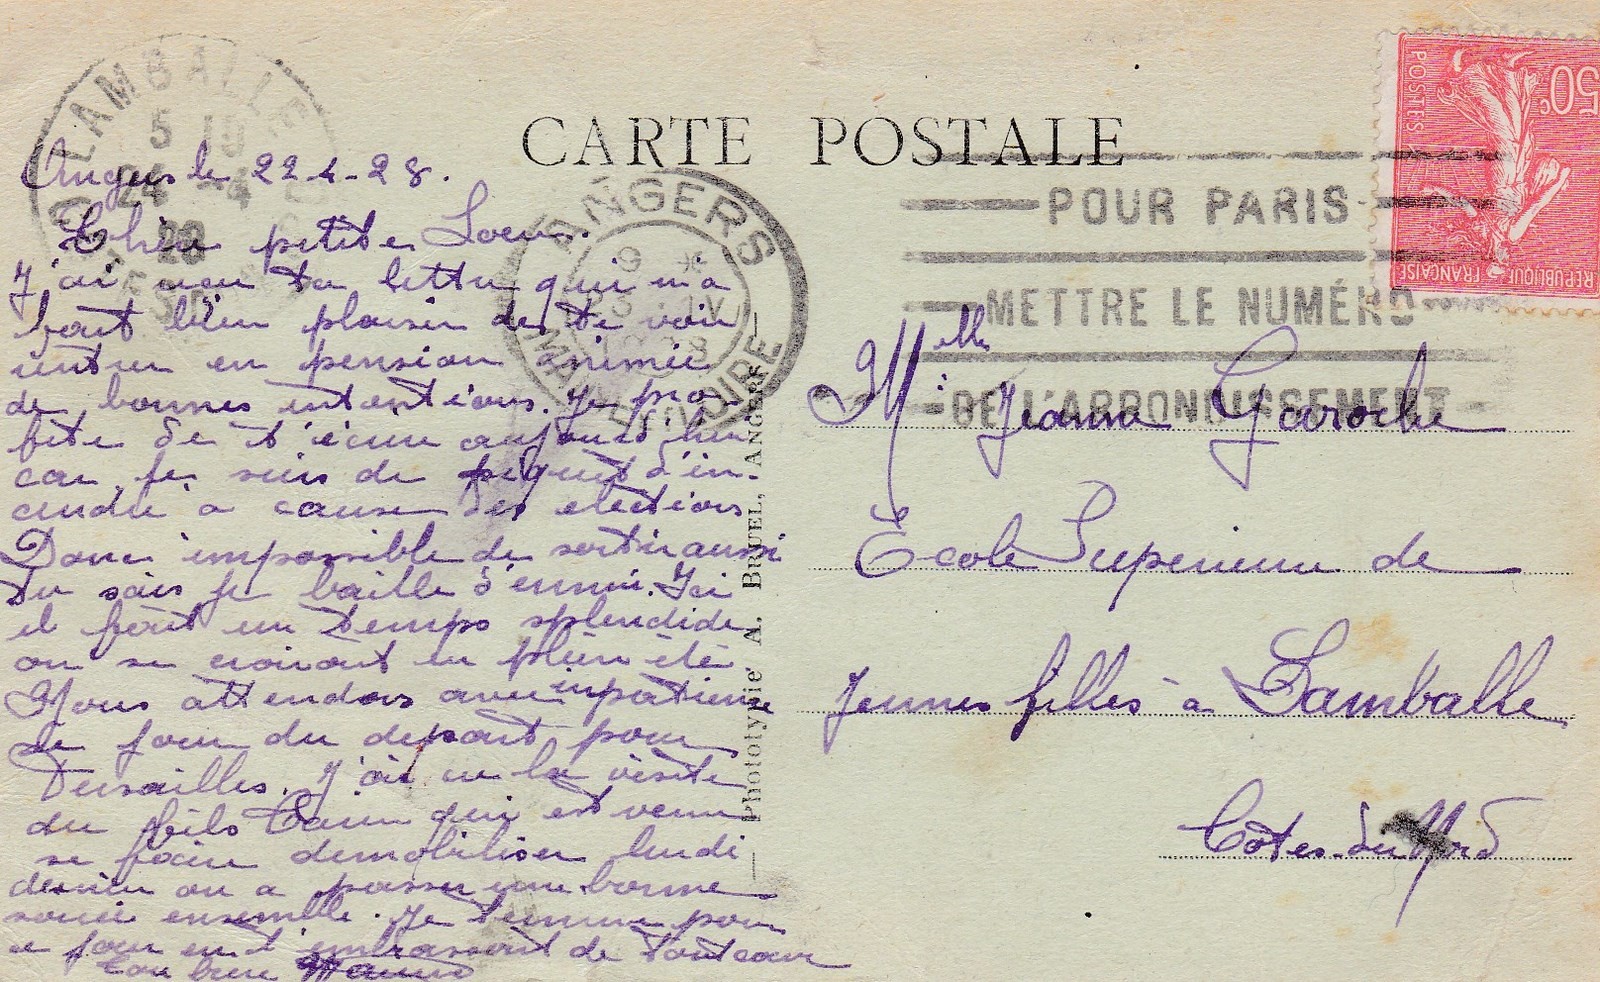 CARTE POSTALE
LAMBALLE
5 10
24 -4
28
ANGERS
MAINE ET LOIRE
POUR PARIS
METTRE LE NUMÉRO
DE L'ARRONDISSEMENT
50c
POSTES
REPUBLIQUE FRANÇAISE
Angers le 22-4-28.
Chère petite Soeur.
J'ai reçu ta lettre qui m'a
fait bien plaisir de te voir
entrer en pension animée
de bonnes intentions. Je pro
fite de t'écrire aujourd'hui
car je suis de piquet d'in-
cendie à cause des elections
Donc impossible de sortir aussi
tu sais je baille d'ennui. Ici
il fait un temps splendide
on se croirait en plein été
Nous attendons avec impatience
le jour du depart pour
Versailles. J'ai eu la visite
du fils qui est venu
se faire demobiliser lundi
dernier on a passer une bonne
soirée ensemble. Je termine pour
ce jour en t'embrassant de tout coeur
Ton frere
Phototypie A. BRUEL, ANGERS
Melle Jeanne Garoche
Ecole Superieure de
Jeunes filles à Lamballe
Côtes-du-Nord